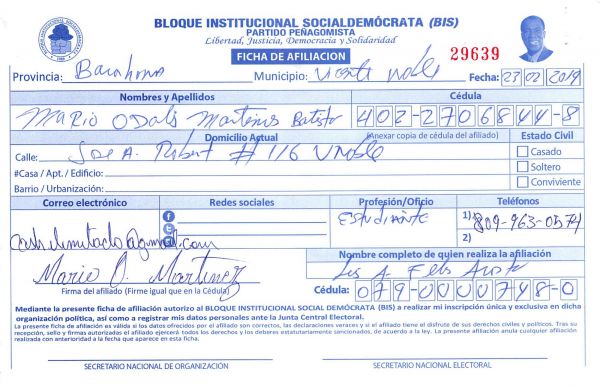 BLOQUE INSTITUCIONAL SOCIALDEMÓCRATA (BIS)
PARTIDO PEÑAGOMISTA
Libertad, Justicia, Democracia y Solidaridad
FICHA DE AFILIACION
29639
Provincia: Barahona Municipio: Vicente Noble Fecha: 23 02 2019
Nombres y Apellidos Cédula
Mario Odalis Martinez Batista 402-2706844-8
Domicilio Actual (Anexar copia de cédula del afiliado) Estado Civil
Calle: Jose A. Robert # 116 V Noble Casado
#Casa / Apt. / Edificio: Soltero
Barrio / Urbanización: Conviviente
Correo electrónico Redes sociales Profesión/Oficio Teléfonos
Estudiante 1) 809-963-0574
2)
@gmail.com
Nombre completo de quien realiza la afiliación
Mario O. Martinez A. Felis Acosta
Firma del afiliado (Firme igual que en la Cédula) Cédula: 079-0000748-0
Mediante la presente ficha de afiliación autorizo al BLOQUE INSTITUCIONAL SOCIAL DEMÓCRATA (BIS) a realizar mi inscripción única y exclusiva en dicha
organización política, así como a registrar mis datos personales ante la Junta Central Electoral.
La presente ficha de afiliación es válida si los datos ofrecidos por el afiliado son correctos, las declaraciones veraces y si el afiliado tiene el disfrute de sus derechos civiles y políticos. Tras su
recepción, sello y firmas autorizadas el afiliado ejercerá todos los derechos y los deberes estatutariamente sancionados, de acuerdo a la ley. La presente afiliación anula cualquier afiliación
realizada con anterioridad a la fecha que aparece en esta ficha.
SECRETARIO NACIONAL DE ORGANIZACIÓN SECRETARIO NACIONAL ELECTORAL